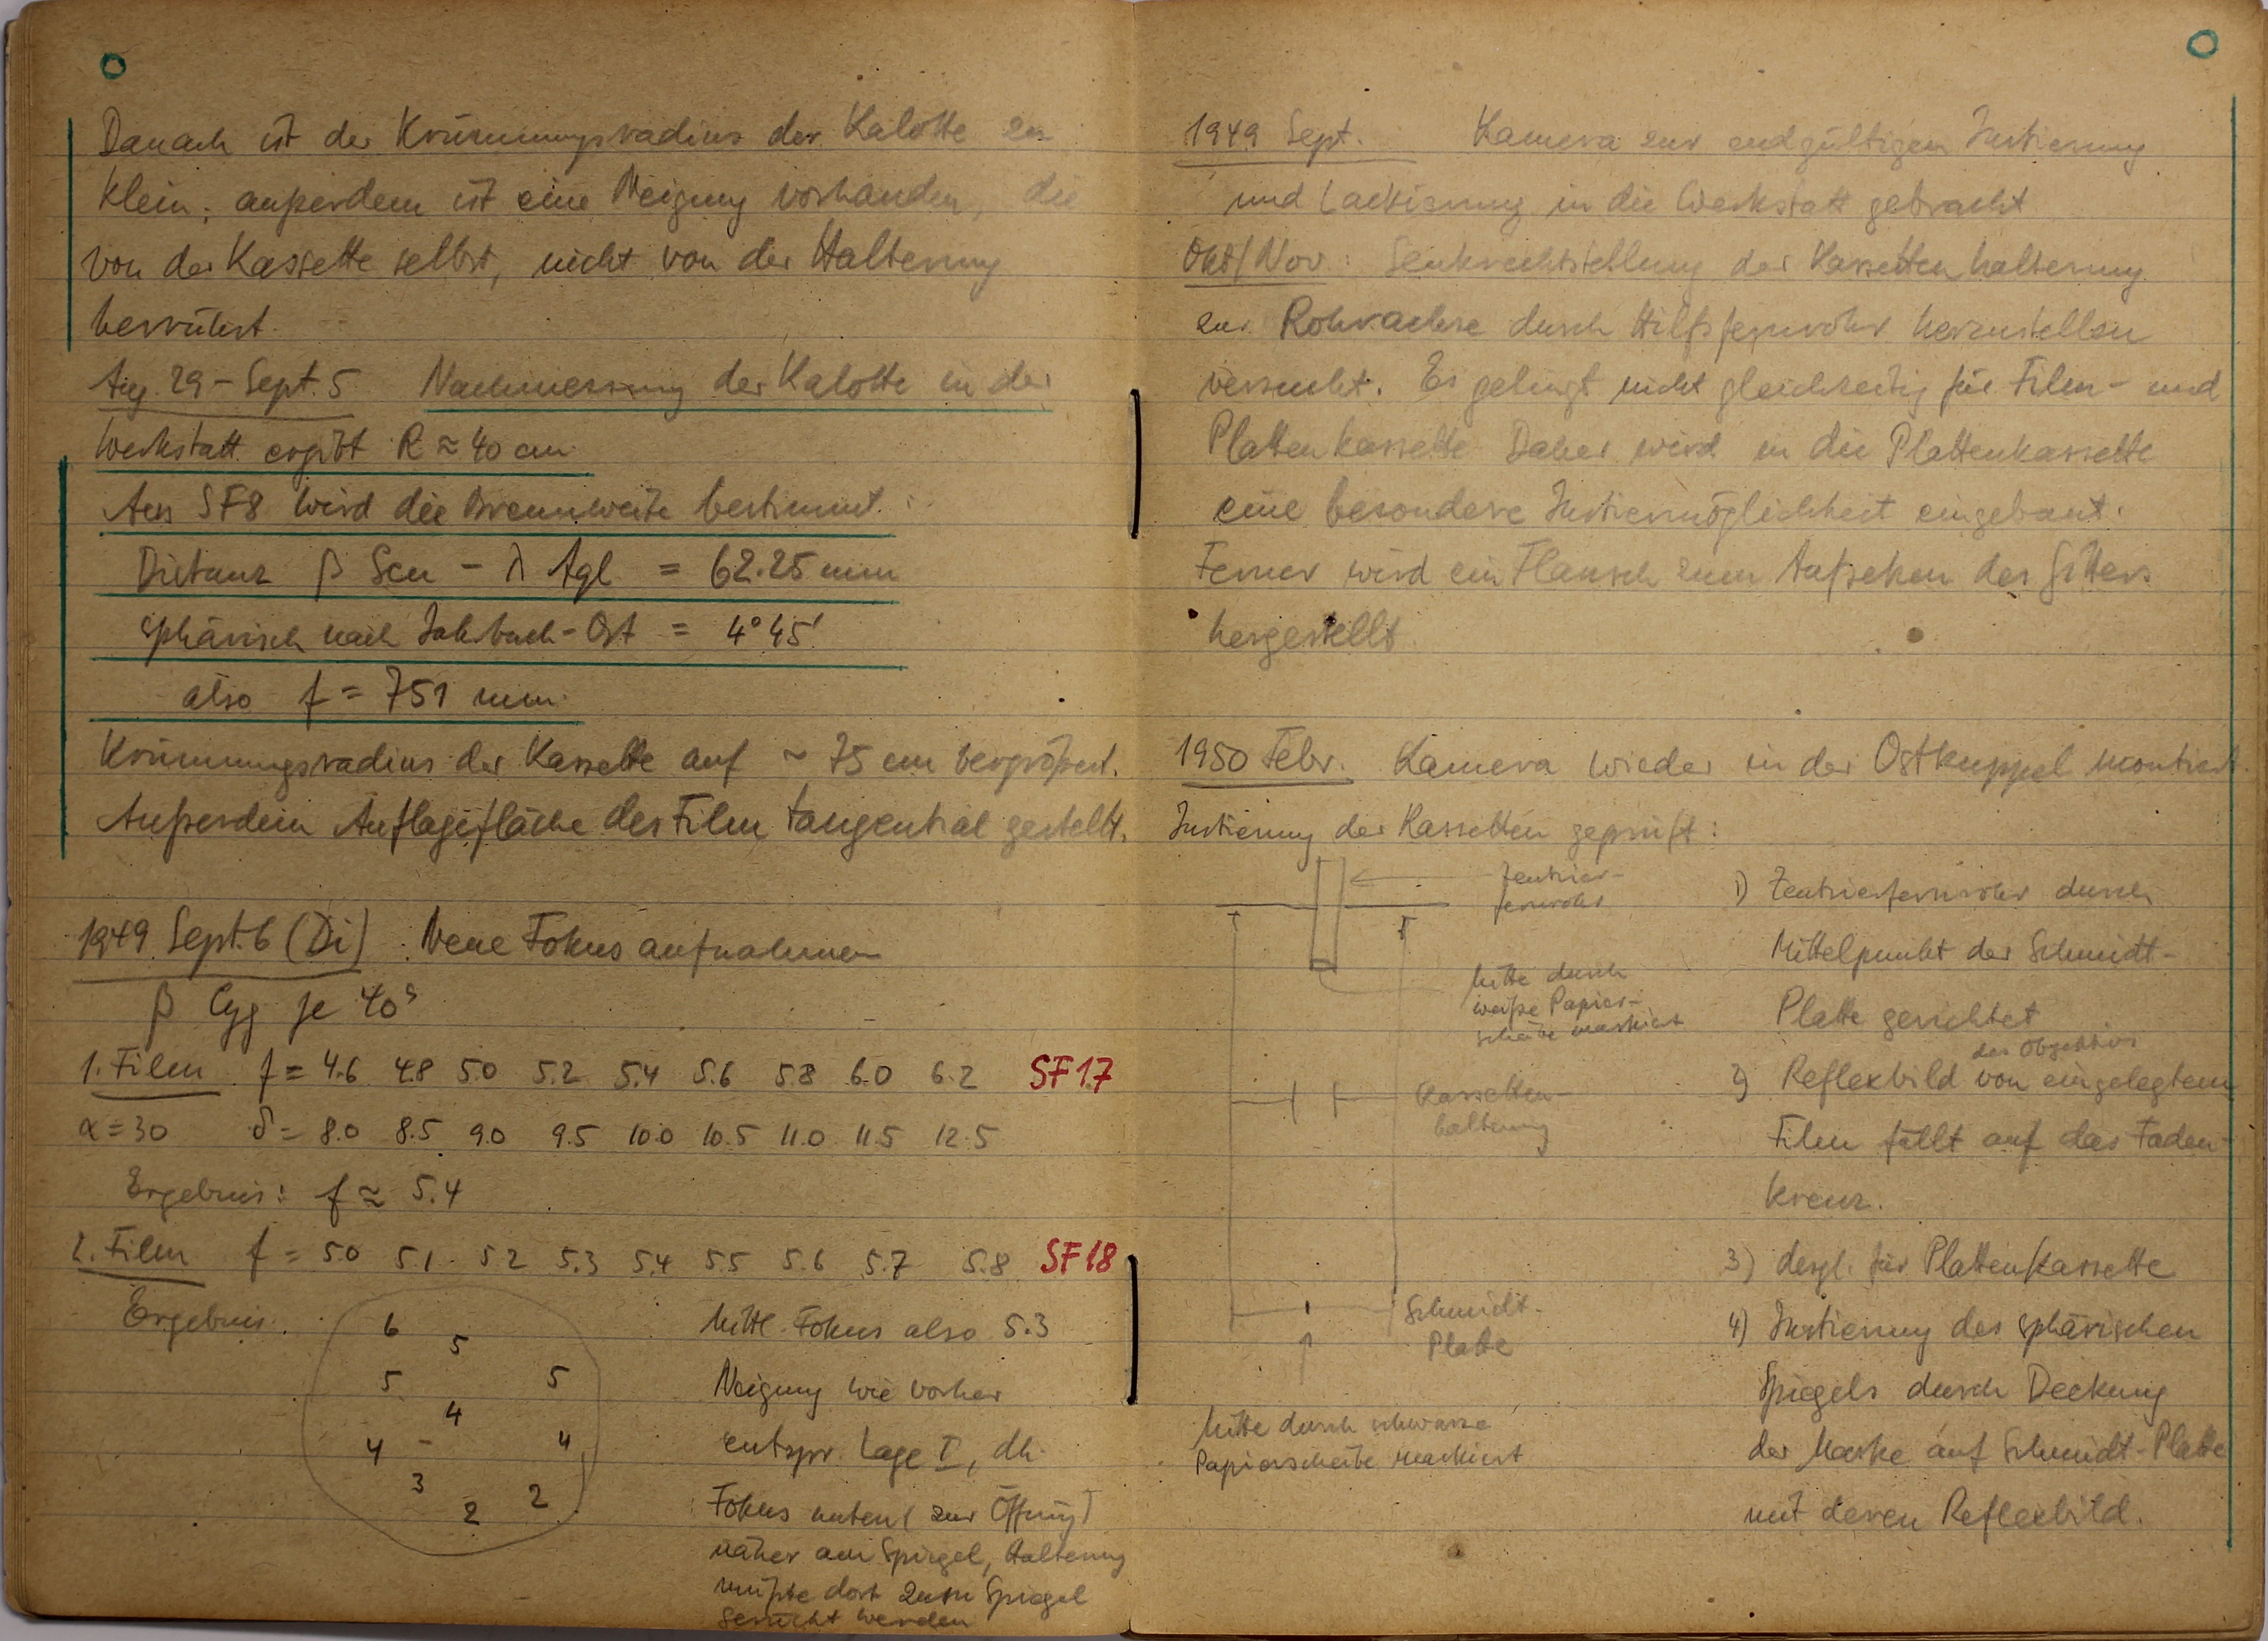 Danach ist der Krümmungsradius der Kalotte zu
klein; außerdem ist eine Neigung vorhanden, die
von der Kassette selbst, nicht von der Halterung
herrührt.
Aug. 29 - Sept. 5 Nachmessung der Kalotte in der
Werkstatt ergibt R ≈ 40 cm
Aus SF8 wird die Brennweite bestimmt:
Distanz β Scu - λ Aql = 62.25 mm
sphärisch nach = 4° 45'
also f = 751 mm
Krümmungsradius der Kassette auf ~ 75 cm vergrößert.
Außerdem Auflagefläche des Films tangential gestellt.
1949 Sept. 6 (Di) : Neue Fokusaufnahmen
β Cyg je 40ˢ
1. Film f = 4.6 4.8 5.0 5.2 5.4 5.6 5.8 6.0 6.2 SF17
α = 30 δ = 8.0 8.5 9.0 9.5 10.0 10.5 11.0 11.5 12.5
Ergebnis: f ≈ 5.4
2. Film f = 5.0 5.1 5.2 5.3 5.4 5.5 5.6 5.7 5.8 SF18
Ergebnis:
6
5
5 5
4
4 - 4
3
2 2
Mittl. Fokus also 5.3
Neigung wie vorher
entspr. Lage I, dh.
Fokus unten (zur Öffnung)
näher am Spiegel, Halterung
müßte dort zum Spiegel
gerückt werden
1949 Sept. Kamera zur endgültigen Justierung
und Lackierung in die Werkstatt gebracht
Okt/Nov: Senkrechtstellung der Kassettenhalterung
zur Rohrachse durch Hilfsfernrohr herzustellen
versucht. Es gelingt nicht gleichzeitig für Film- und
Plattenkassette Daher wird in die Plattenkassette
eine besondere Justiermöglichkeit eingebaut.
Ferner wird ein Flansch zum Aufsetzen des Gitters
hergestellt
1950 Febr. Kamera wieder in der Ostkuppel montiert
Justierung der Kassetten geprüft:
Zentrier-
fernrohr
Mitte durch
weiße Papier-
scheibe markiert
Kassetten-
halterung
Schmidt-
Platte
Mitte durch schwarze
Papierscheibe markiert
1) Zentrierfernrohr durch
Mittelpunkt der Schmidt-
Platte gerichtet
des Objektivs
2) Reflexbild von eingelegtem
Film fällt auf das Faden-
kreuz.
3) desgl. für Plattenkassette
4) Justierung des sphärischen
Spiegels durch Deckung
der Marke auf Schmidt-Platte
mit deren Reflexbild.